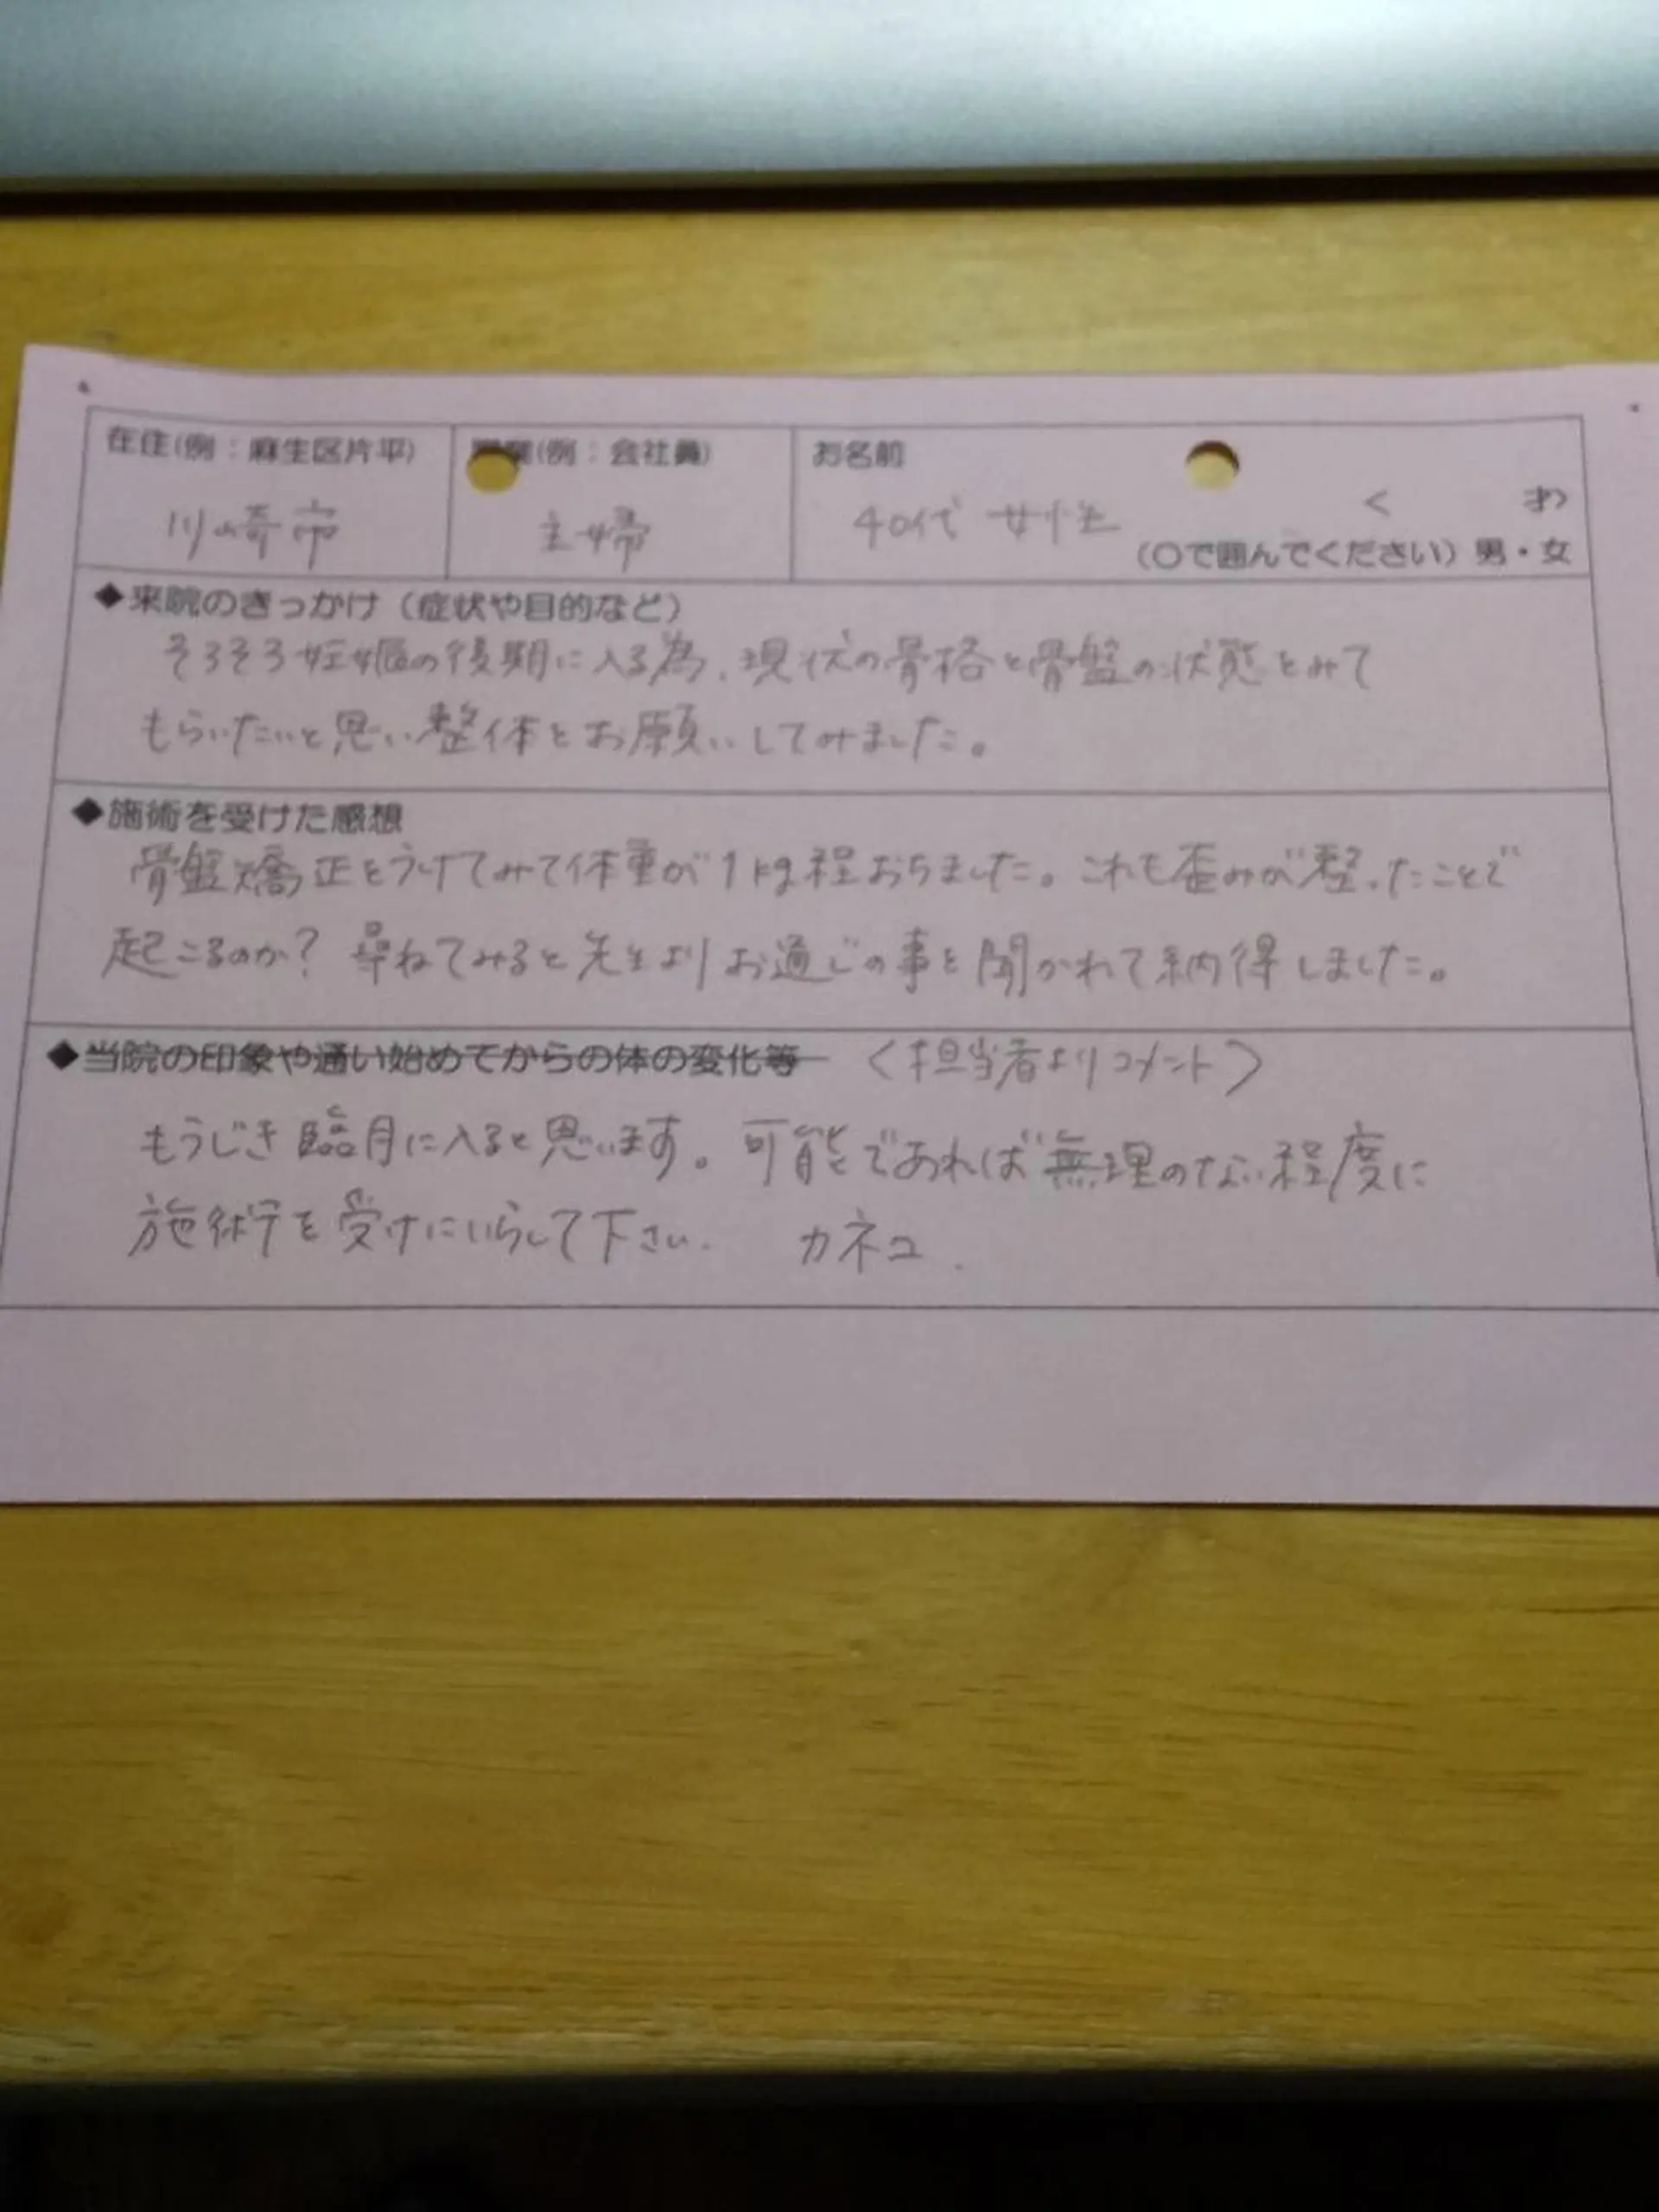 在住(例：麻生区片平)
業(例：会社員)
お名前
川崎市
主婦
40代 女性
く
(○で囲んでください) 男・女
◆来院のきっかけ（症状や目的など）
そろそろ妊娠の後期に入る為、現状の骨格と骨盤の状態をみて
もらいたいと思い整体をお願いしてみました。
◆施術を受けた感想
骨盤矯正をうけてみて体重が1kg程おちました。これも歪みが整ったことで
起こるのか？ 尋ねてみると先生よりお通じの事を聞かれて納得しました。
◆当院の印象や通い始めてからの体の変化等 〈担当者よりコメント〉
もうじき臨月に入ると思います。可能であれば無理のない程度に
施術を受けにいらして下さい. カネコ.